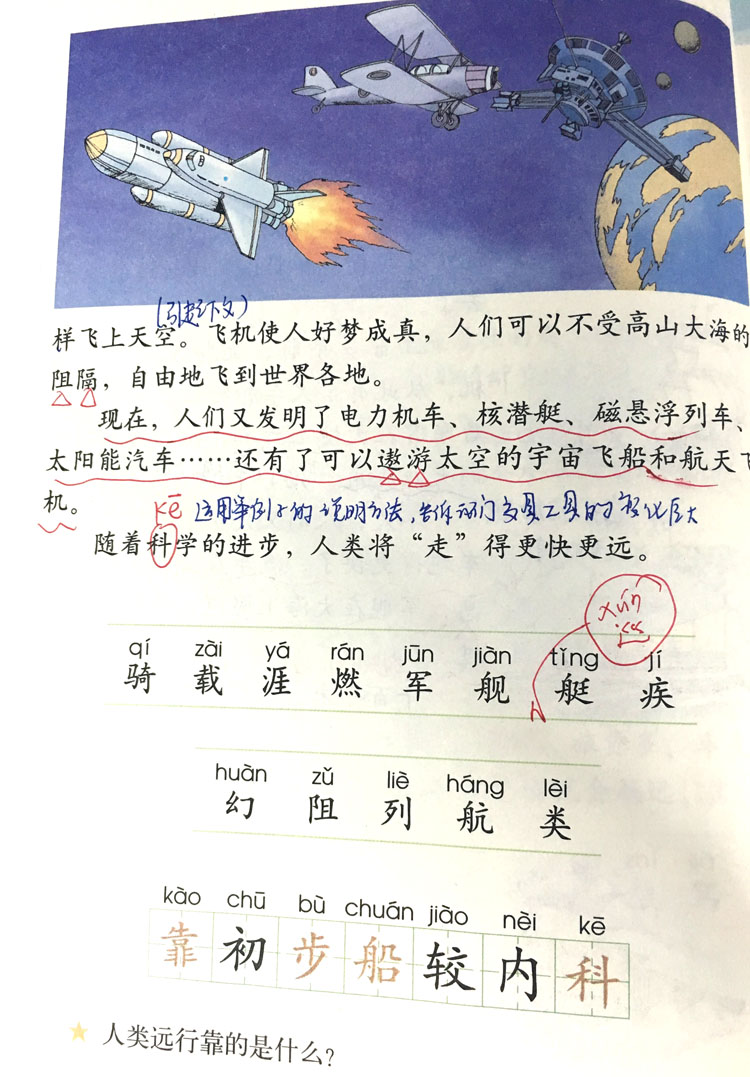 (引起下文)
样飞上天空。飞机使人好梦成真，人们可以不受高山大海的
阻隔，自由地飞到世界各地。
现在，人们又发明了电力机车、核潜艇、磁悬浮列车、
太阳能汽车……还有了可以遨游太空的宇宙飞船和航天飞
机。
kē 运用举例子的说明方法，告诉我们交通工具的变化巨大
随着科学的进步，人类将“走”得更快更远。
xún
qí zài yá rán jūn jiàn tǐng jí
骑 载 涯 燃 军 舰 艇 疾
huàn zǔ liè háng lèi
幻 阻 列 航 类
kào chū bù chuán jiào nèi kē
靠 初 步 船 较 内 科
人类远行靠的是什么？